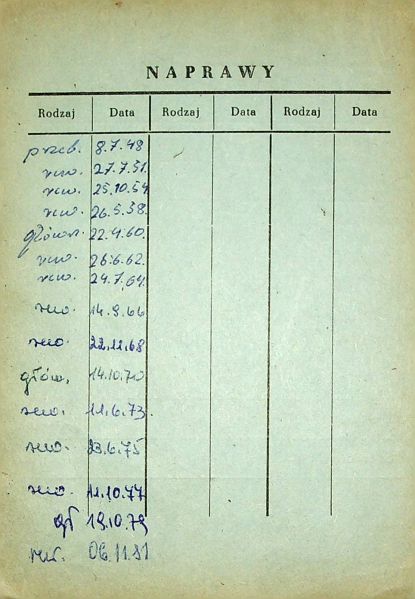 NAPRAWY
Rodzaj Data Rodzaj Data Rodzaj Data
przeb. 8.7.48
rew. 27.7.51.
rew. 25.10.54
rew. 26.5.58.
główn. 22.4.60.
rew. 26.6.62.
rew. 24.7.64.
rewo. 14.9.66
rewo. 22.11.68
główn. 14.10.70
rewo. 11.6.73.
rewo. 23.6.75
rewo. 11.10.77
gł 19.10.79
rew. 06.11.81